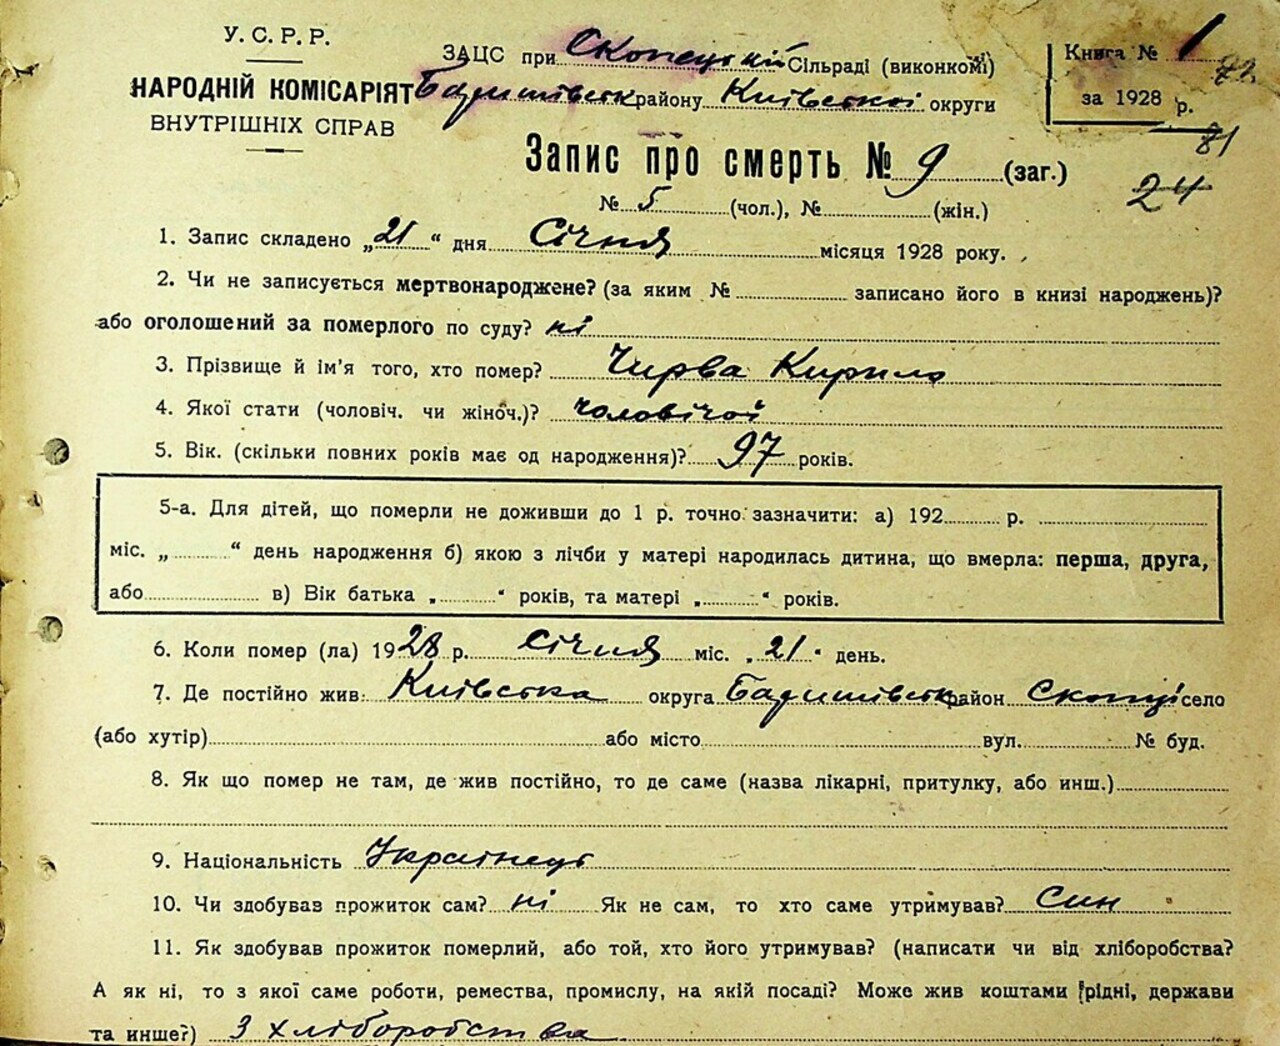 У. С. Р. Р.
НАРОДНІЙ КОМІСАРІЯТ
ВНУТРІШНІХ СПРАВ
ЗАЦС при Скопецькій Сільраді (виконкомі)
Баришівськ району Київської округи
Книга № 1
за 1928 р.
72
81
24
Запис про смерть № 9 (заг.)
№ 5 (чол.), № (жін.)
1. Запис складено „21“ дня Січня місяця 1928 року.
2. Чи не записується мертвонароджене? (за яким № записано його в книзі народжень)?
або оголошений за померлого по суду? ні
3. Прізвище й ім'я того, хто помер? Чирва Кирило
4. Якої стати (чоловіч. чи жіноч.)? чоловічої
5. Вік. (скільки повних років має од народження)? 97 років.
5-а. Для дітей, що померли не доживши до 1 р. точно зазначити: а) 192 р.
міс. „ “ день народження б) якою з лічби у матері народилась дитина, що вмерла: перша, друга,
або в) Вік батька „ “ років, та матері „ “ років.
6. Коли помер (ла) 1928 р. Січня міс. „21“ день.
7. Де постійно жив: Київська округа Баришівськ район Скопці село
(або хутір) або місто вул. № буд.
8. Як що помер не там, де жив постійно, то де саме (назва лікарні, притулку, або инш.)
9. Національність Українець
10. Чи здобував прожиток сам? ні Як не сам, то хто саме утримував? Син
11. Як здобував прожиток померлий, або той, хто його утримував? (написати чи від хліборобства?
А як ні, то з якої саме роботи, ремества, промислу, на якій посаді? Може жив коштами рідні, держави
та инше?) З хліборобства